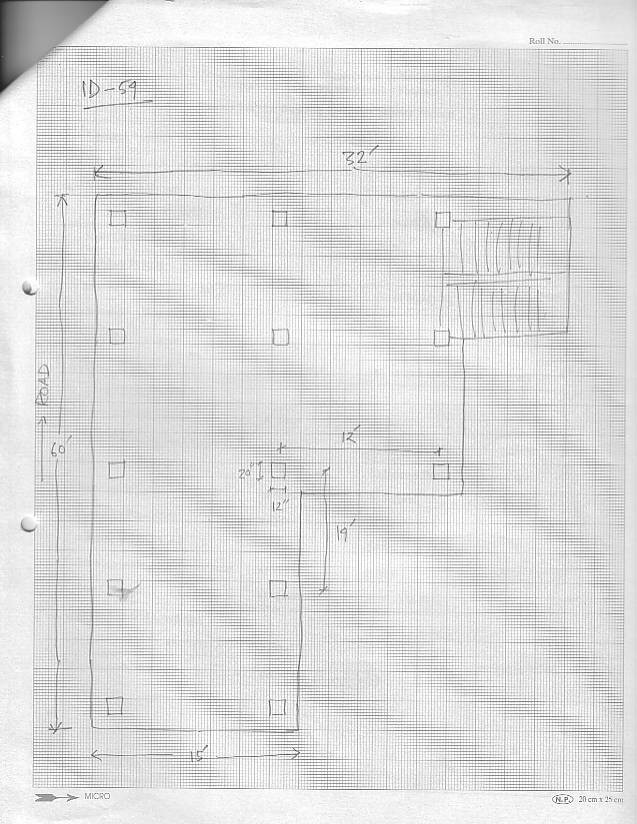 Roll No.
ID-59
32'
ROAD
60'
12'
20"
12"
14'
15'
MICRO
N.P. 20 cm x 25 cm